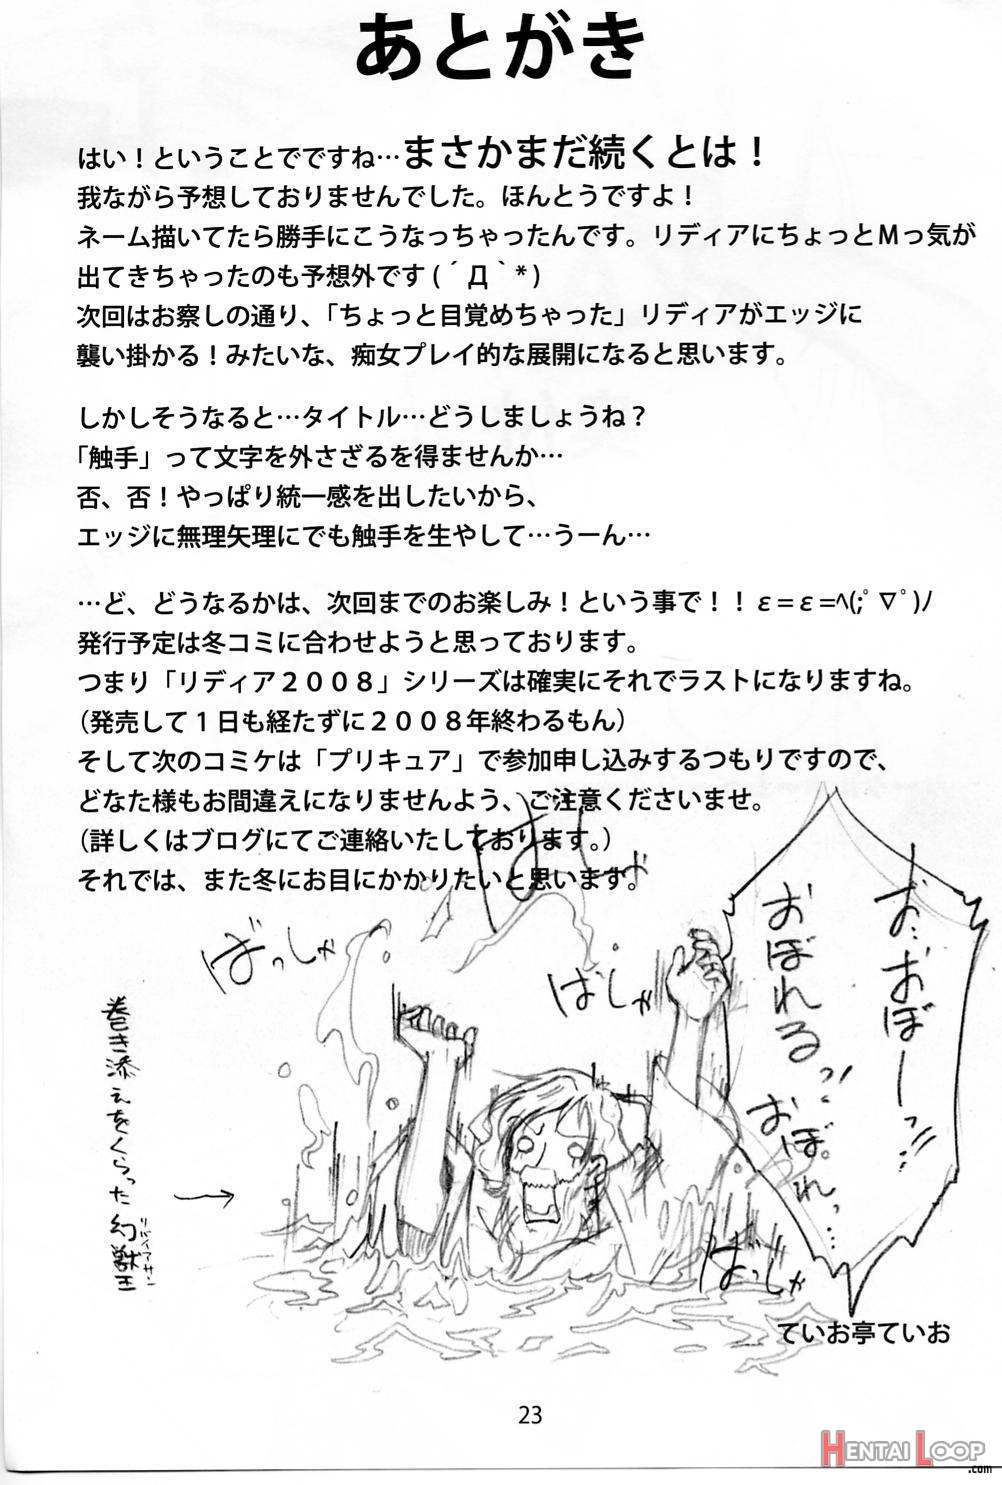 あとがき
はい！ということでですね…まさかまだ続くとは！
我ながら予想しておりませんでした。ほんとうですよ！
ネーム描いてたら勝手にこうなっちゃったんです。リディアにちょっとＭっ気が
出てきちゃったのも予想外です (´Д`*)
次回はお察しの通り、「ちょっと目覚めちゃった」リディアがエッジに
襲い掛かる！みたいな、痴女プレイ的な展開になると思います。
しかしそうなると…タイトル…どうしましょうね？
「触手」って文字を外さざるを得ませんか…
否、否！やっぱり統一感を出したいから、
エッジに無理矢理にでも触手を生やして…うーん…
…ど、どうなるかは、次回までのお楽しみ！という事で！！ε=ε=ﾍ(;ﾟ∇ﾟ)ﾉ
発行予定は冬コミに合わせようと思っております。
つまり「リディア２００８」シリーズは確実にそれでラストになりますね。
（発売して１日も経たずに２００８年終わるもん）
そして次のコミケは「プリキュア」で参加申し込みするつもりですので、
どなた様もお間違えになりませんよう、ご注意くださいませ。
（詳しくはブログにてご連絡いたしております。）
それでは、また冬にお目にかかりたいと思います。
お、おぼーっ!!
おぼれるっ!
おぼれっ…
ばしゃ
ばっしゃ
ばしゃ
ばっしゃ
巻き添えをくらった幻獣王
→
ていお亭ていお
23
HENTAI LOOP
.com